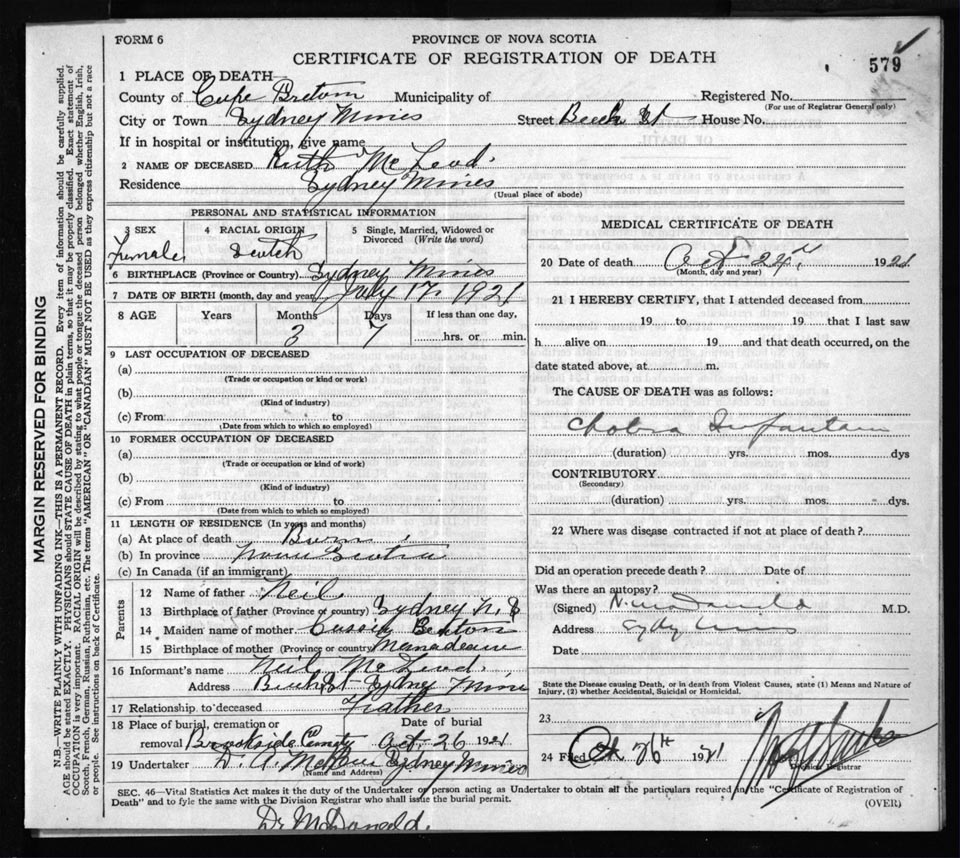 FORM 6
PROVINCE OF NOVA SCOTIA
CERTIFICATE OF REGISTRATION OF DEATH
579
1 PLACE OF DEATH—
County of Cape Breton Municipality of Registered No.
(For use of Registrar General only)
City or Town Sydney Mines Street Beech St House No.
If in hospital or institution, give name
2 NAME OF DECEASED Ruth McLeod
Residence Sydney Mines
(Usual place of abode)
PERSONAL AND STATISTICAL INFORMATION
3 SEX 4 RACIAL ORIGIN 5 Single, Married, Widowed or Divorced (Write the word)
Female Scotch
6 BIRTHPLACE (Province or Country) Sydney Mines
7 DATE OF BIRTH (month, day and year) July 17, 1921
8 AGE Years Months Days If less than one day,
3 7 hrs. or min.
9 LAST OCCUPATION OF DECEASED
(a)
(Trade or occupation or kind or work)
(b)
(Kind of industry)
(c) From to
(Date from which to which so employed)
10 FORMER OCCUPATION OF DECEASED
(a)
(Trade or occupation or kind of work)
(b)
(Kind of industry)
(c) From to
(Date from which to which so employed)
11 LENGTH OF RESIDENCE (In years and months)
(a) At place of death Born
(b) In province Nova Scotia
(c) In Canada (if an immigrant)
Parents
12 Name of father Neil
13 Birthplace of father (Province or country) Sydney N. S
14 Maiden name of mother
15 Birthplace of mother (Province or country)
16 Informant's name Neil McLeod
Address Beech St Sydney Mine
17 Relationship to deceased Father
18 Place of burial, cremation or Date of burial
removal Brookside Oct. 26 1921
19 Undertaker D. A. Sydney Mines
(Name and Address)
MEDICAL CERTIFICATE OF DEATH
20 Date of death Oct 24 1921
(Month, day and year)
21 I HEREBY CERTIFY, that I attended deceased from
19 to 19 that I last saw
h alive on 19 and that death occurred, on the
date stated above, at m.
The CAUSE OF DEATH was as follows:
Cholera Infantum
(duration) yrs. mos. dys
CONTRIBUTORY
(Secondary)
(duration) yrs. mos. dys.
22 Where was disease contracted if not at place of death?
Did an operation precede death? Date of
Was there an autopsy?
(Signed) N. McDonald M.D.
Address Sydney Mines
Date
State the Disease causing Death, or in death from Violent Causes, state (1) Means and Nature of
Injury, (2) whether Accidental, Suicidal or Homicidal.
23
24 Filed Oct 26th 1921
Division Registrar
SEC. 46—Vital Statistics Act makes it the duty of the Undertaker or person acting as Undertaker to obtain all the particulars required in the "Certificate of Registration of
Death" and to fyle the same with the Division Registrar who shall issue the burial permit.
(OVER)
Dr McDonald.
MARGIN RESERVED FOR BINDING
N.B.—WRITE PLAINLY WITH UNFADING INK—THIS IS A PERMANENT RECORD. Every item of information should be carefully supplied.
AGE should be stated EXACTLY. PHYSICIANS should STATE CAUSE OF DEATH in plain terms, so that it may be properly classified. Exact statement of
OCCUPATION is very important. RACIAL ORIGIN will be described by stating to what people or tongue the deceased person belonged whether English, Irish,
Scotch, French, German, Russian, Ruthenian, etc. The terms "AMERICAN" OR "CANADIAN" MUST NOT BE USED as they express citizenship but not a race
or people. See instructions on back of Certificate.